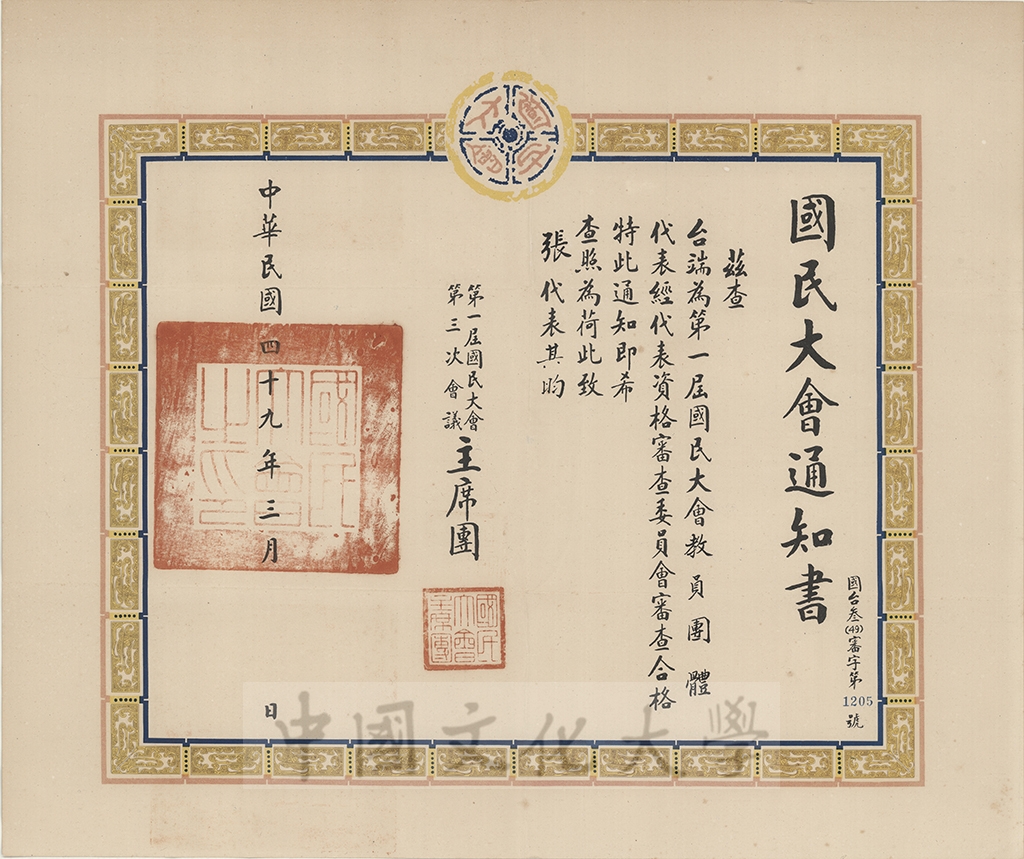 國民大會通知書
國台叁(49)審字第1205號
茲查
台端為第一屆國民大會教員團體
代表經代表資格審查委員會審查合格
特此通知即希
查照為荷此致
張代表其昀
第一屆國民大會
第三次會議
主席團
國民
大會
主席團
中華民國四十九年三月 日
國民
大會
之印
中國文化大學